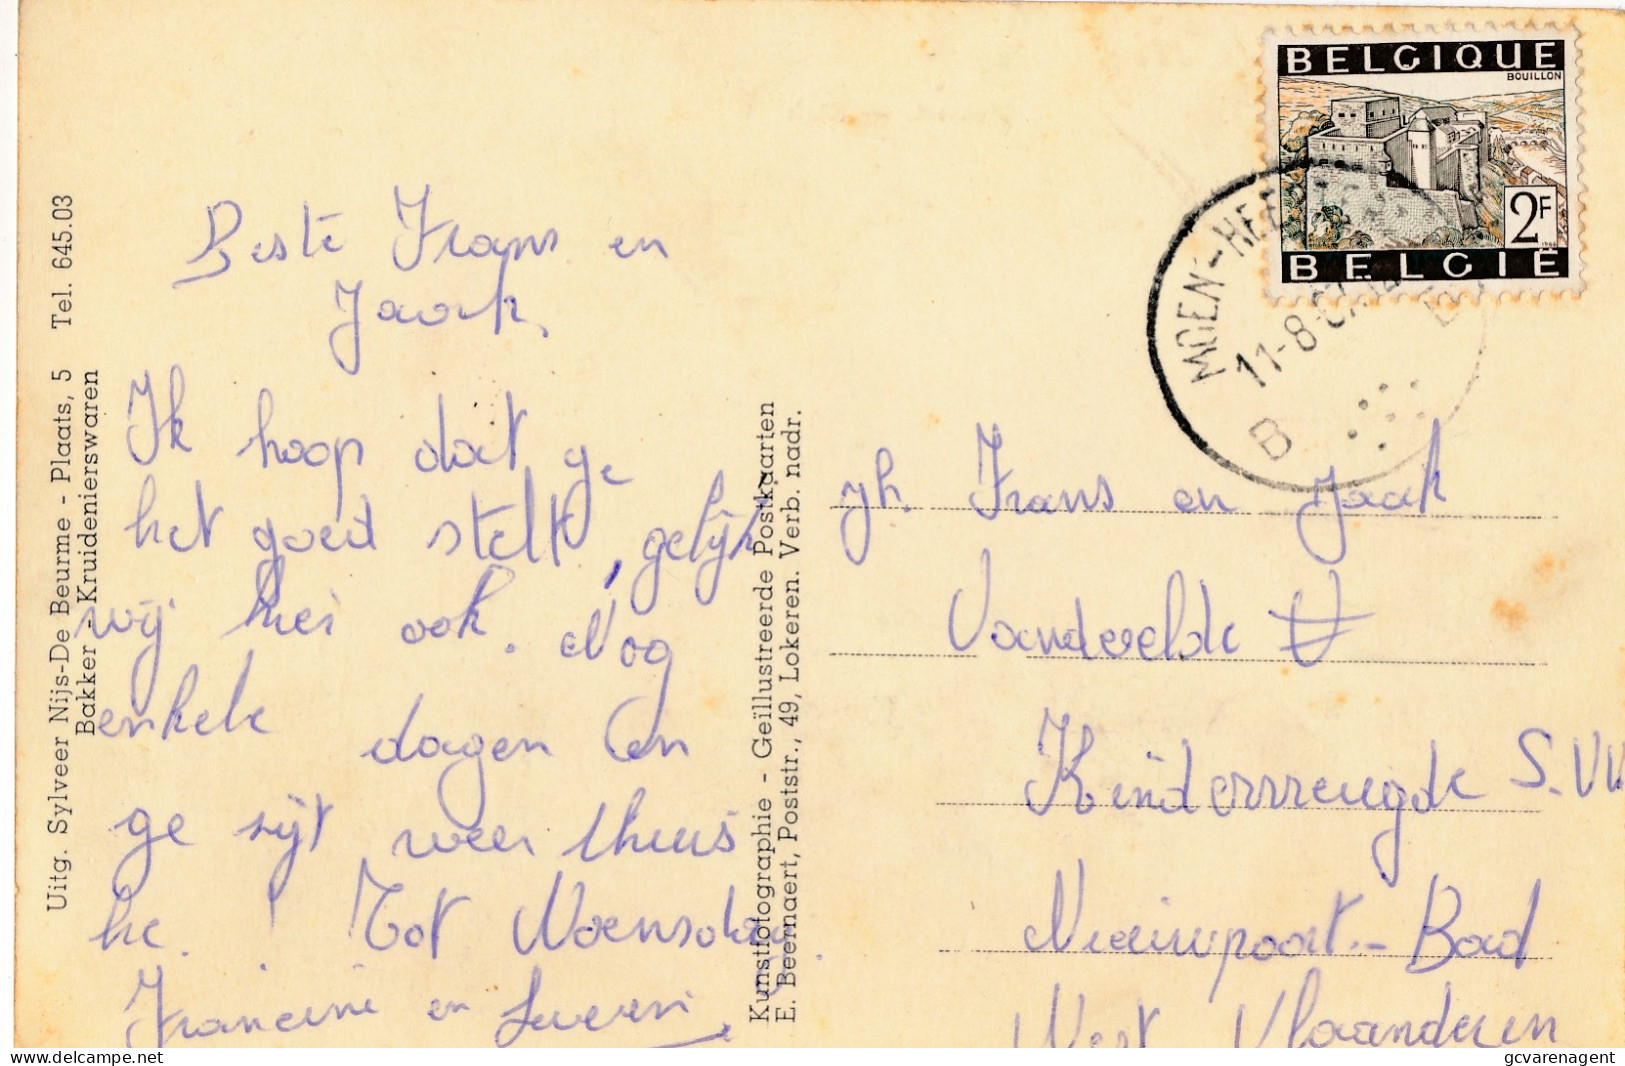 BELGIQUE
BOUILLON
2F
1966
BELGIË
MOEN-HEE
11-8-67
B
Uitg. Sylveer Nijs-De Beurme - Plaats, 5 Tel. 645.03
Bakker - Kruidenierswaren
Beste Frans en
Jaak.
Ik hoop dat ge
het goed stelt, gelijk
wij hier ook. Nog
enkele dagen en
ge zijt weer thuis
he. ! Tot Woensdag.
Francine en
Kunstfotographie - Geïllustreerde Postkaarten
E. Beernaert, Poststr., 49, Lokeren. Verb. nadr.
Jh. Frans en Jaak
Vandevelde
Kindervreugde S.V.V
Nieuwpoort-Bad
West Vlaanderen
delcampe.net
gcvarenagent